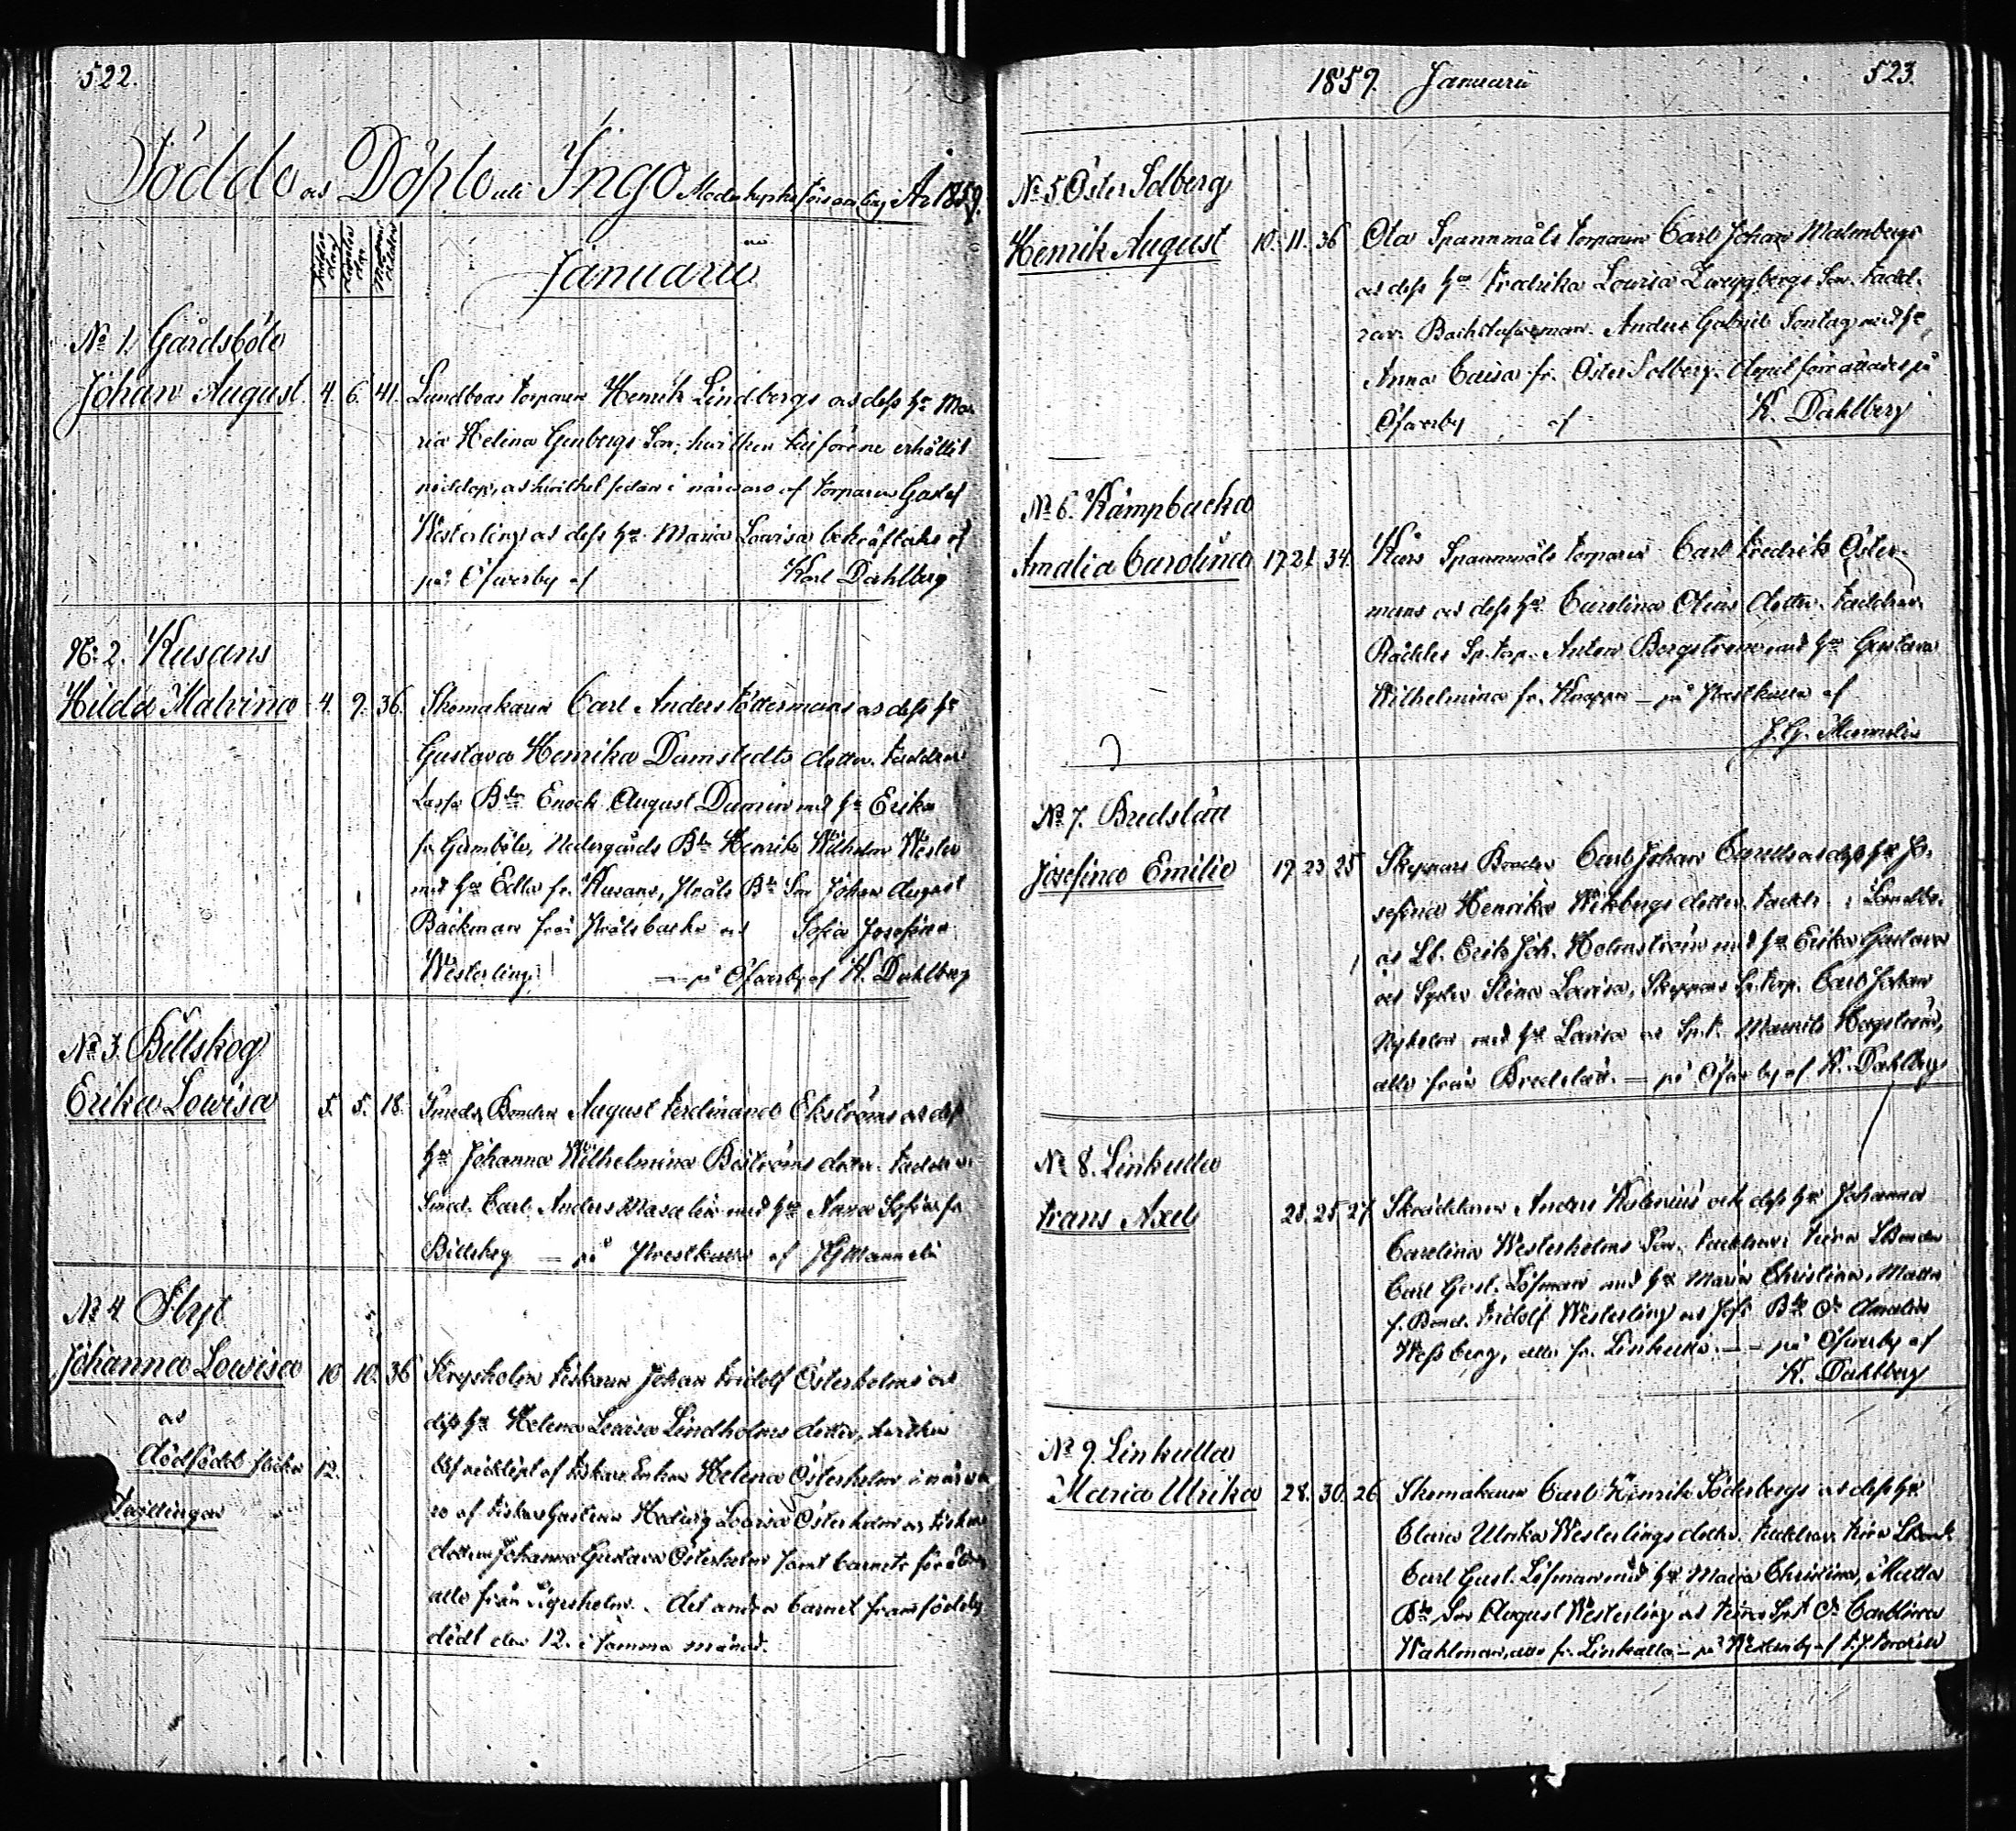 522.
Födde och Döpte uti Ingo Moderkyrkoförsamling År 1859.
Januarii
No 1. Gårdsböle
Johan August. 4. 6. 41. Lundbras torparen Henrik Lindbergs och dess hu Ma-
ria Helena Genbergs Son, hvilken tillförene erhållit
nöddop, och hvilket sedan i närvaro af torparen Gustaf
Westerling och dess hu Maria Lovisa bekräftades
på Öfverby af Karl Dahlberg
No 2. Kusans
Hilda Malvina 4. 9. 36. Skomakaren Carl Anders Töttermans och dess hu
Gustava Henrika Damstedts dotter. Faddrar
Bdn Enoch August Dumin med hu Erika
fr Gumböle, Nedergårds Bdn Henrik Wilhelm Wester
med hu Edla fr. Kusans, Bdn Son Johan August
Bäckman från och Sofia Josefina
Westerling. — på Öfverby af K. Dahlberg
No 3. Billskog
Erika Lowisa 5. 5. 18. Smeds Bonden August Ferdinand Ekströms och dess
hu Johanna Wilhelmina Boströms dotter. Faddrar
Smed. Carl Anders Masalin med hu Anna Sofia fr
Billskog — på Prestkulla af JGMannelin
No 4
Johanna Lowisa 10 10. 36 fiskaren Johan Fridolf Österholms och
och dess hu Helena Lovisa Lindholms dotter, hvilken
dödfödd flicka 12. af Fiskare Enkan Helena Österholm i närva
Twillingar ro af Hedvig Lovisa Österholm och
dottern Johanna Gustava Österholm samt barnets föräldrar
alla från Ägesholm. Det andra barnet framföddes
dödt den 12. i samma månad.
1859. Januarii 523.
No 5 Öster Solberg
Henrik August 10. 11. 36 Ola Spannmåls torparen Carl Johan Malmbergs
och dess hu Fredrika Lovisa Son. Fadd-
rar: Anders Gabriel Sontag med hu
Anna Caisa fr. Öster Solberg. Dopet förrättades på
Öfverby af K. Dahlberg
No 6. Kämpbacka
Amalia Carolina 17. 21. 34. Spannmåls torparen Carl Fredrik Öster-
mans och dess hu Carolina dotter. Faddrar
Sp. torp. Anton Bergström med hu Gustava
Wilhelmina fr. Knappe — på Prestkulla af
J. G. Mannelin
No 7. Bredslätt
Josefina Emilia 19. 23. 25 Skeppars Bonden Carl Johan och dess hu Jo-
sefina Henrika Wikbergs dotter. Faddr.
Erik Joh. Holmström med hu Erika Gustava
och Syster Stina Lovisa, Skeppars Sp. torp. Carl Johan
Nyholm med hu Lovisa och Sp. t. Hagström,
alla från Bredslätt. — på Öfverby af K. Dahlberg
No 8. Linkulla
Frans Axel 23. 25. 27 Skräddaren Anders Kolenius och dess hu Johanna
Carolina Westerholms Son. Faddrar:
Carl Gust. Löfman med hu Maria Christina, Matta
f. Bond. Fridolf Westerling och Bdn Dr Amalia
Wessberg, alla fr. Linkulla. — på Öfverby af
K. Dahlberg
No 9. Linkulla
Maria Ulrika 28. 30. 26 Skomakaren Carl Henrik Söderbergs och dess hu
Ulrika Westerlings dotter. Faddrar
Carl Gust. Löfman med hu Maria Christina, Matta
Bdn Son August Westerling och Carolina
Wahlman, alla fr. Linkulla — på Westerby af